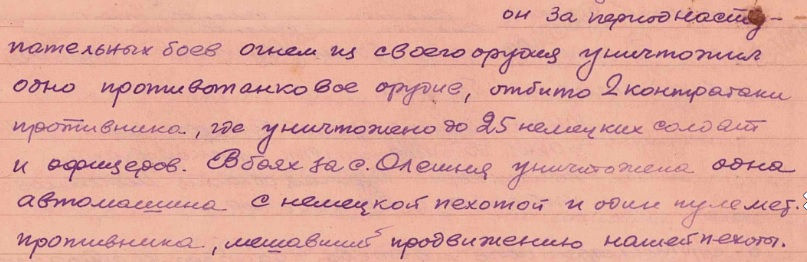 он за период насту-
пательных боев огнем из своего орудия уничтожил
одно противотанковое орудие, отбито 2 контратаки
противника, где уничтожено до 25 немецких солдат
и офицеров. В боях за с. Олешня уничтожена одна
автомашина с немецкой пехотой и один пулемет.
противника, мешавший продвижению нашей пехоты.